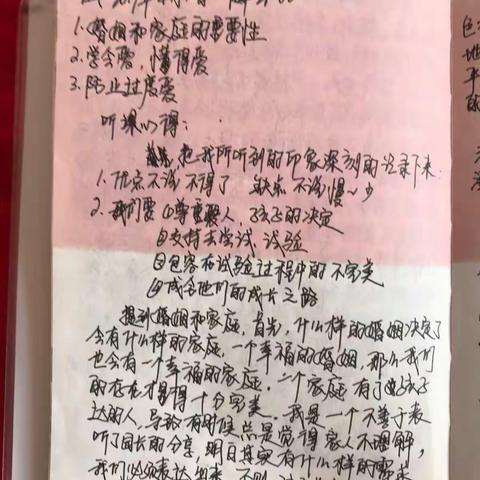 1.婚姻和家庭的重要性
2.学会爱,懂得爱
3.防止过度爱
听课心得:
把我所听到的印象深刻的记录下来:
1.优点不说不得了 缺点不说慢~少
2.我们要①尊重爱人,孩子的决定
②支持去尝试、试验
③包容在试验过程中的不完美
④成全他们的成长之路
提到婚姻和家庭,首先,什么样的婚姻决定了
会有什么样的家庭,一个幸福的婚姻,那么我们
也会有一个幸福的家庭。一个家庭有了孩子
的存在才显得十分完美。我是一个不善于表
达的人,导致有时候总是觉得家人不理解,
听了园长的分享,明白其实有什么样的需求
我们必须表达出来,不则
色
地
平
的